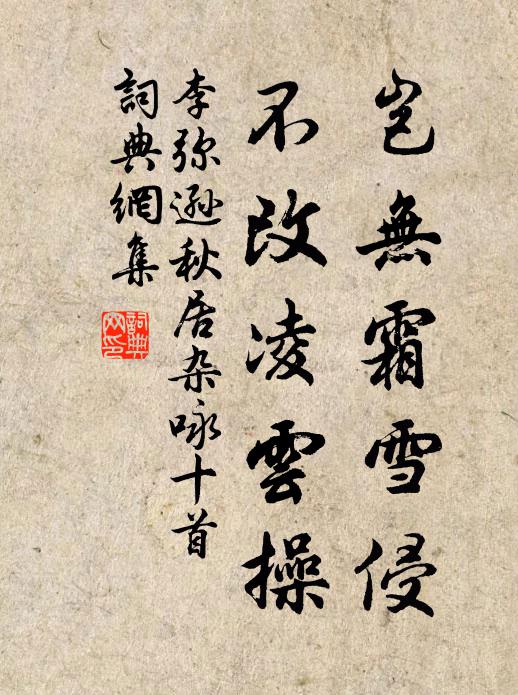 岂無霜雪侵
不改凌雲操
李弥遜秋居杂咏十首
詞典網集
詞典网印